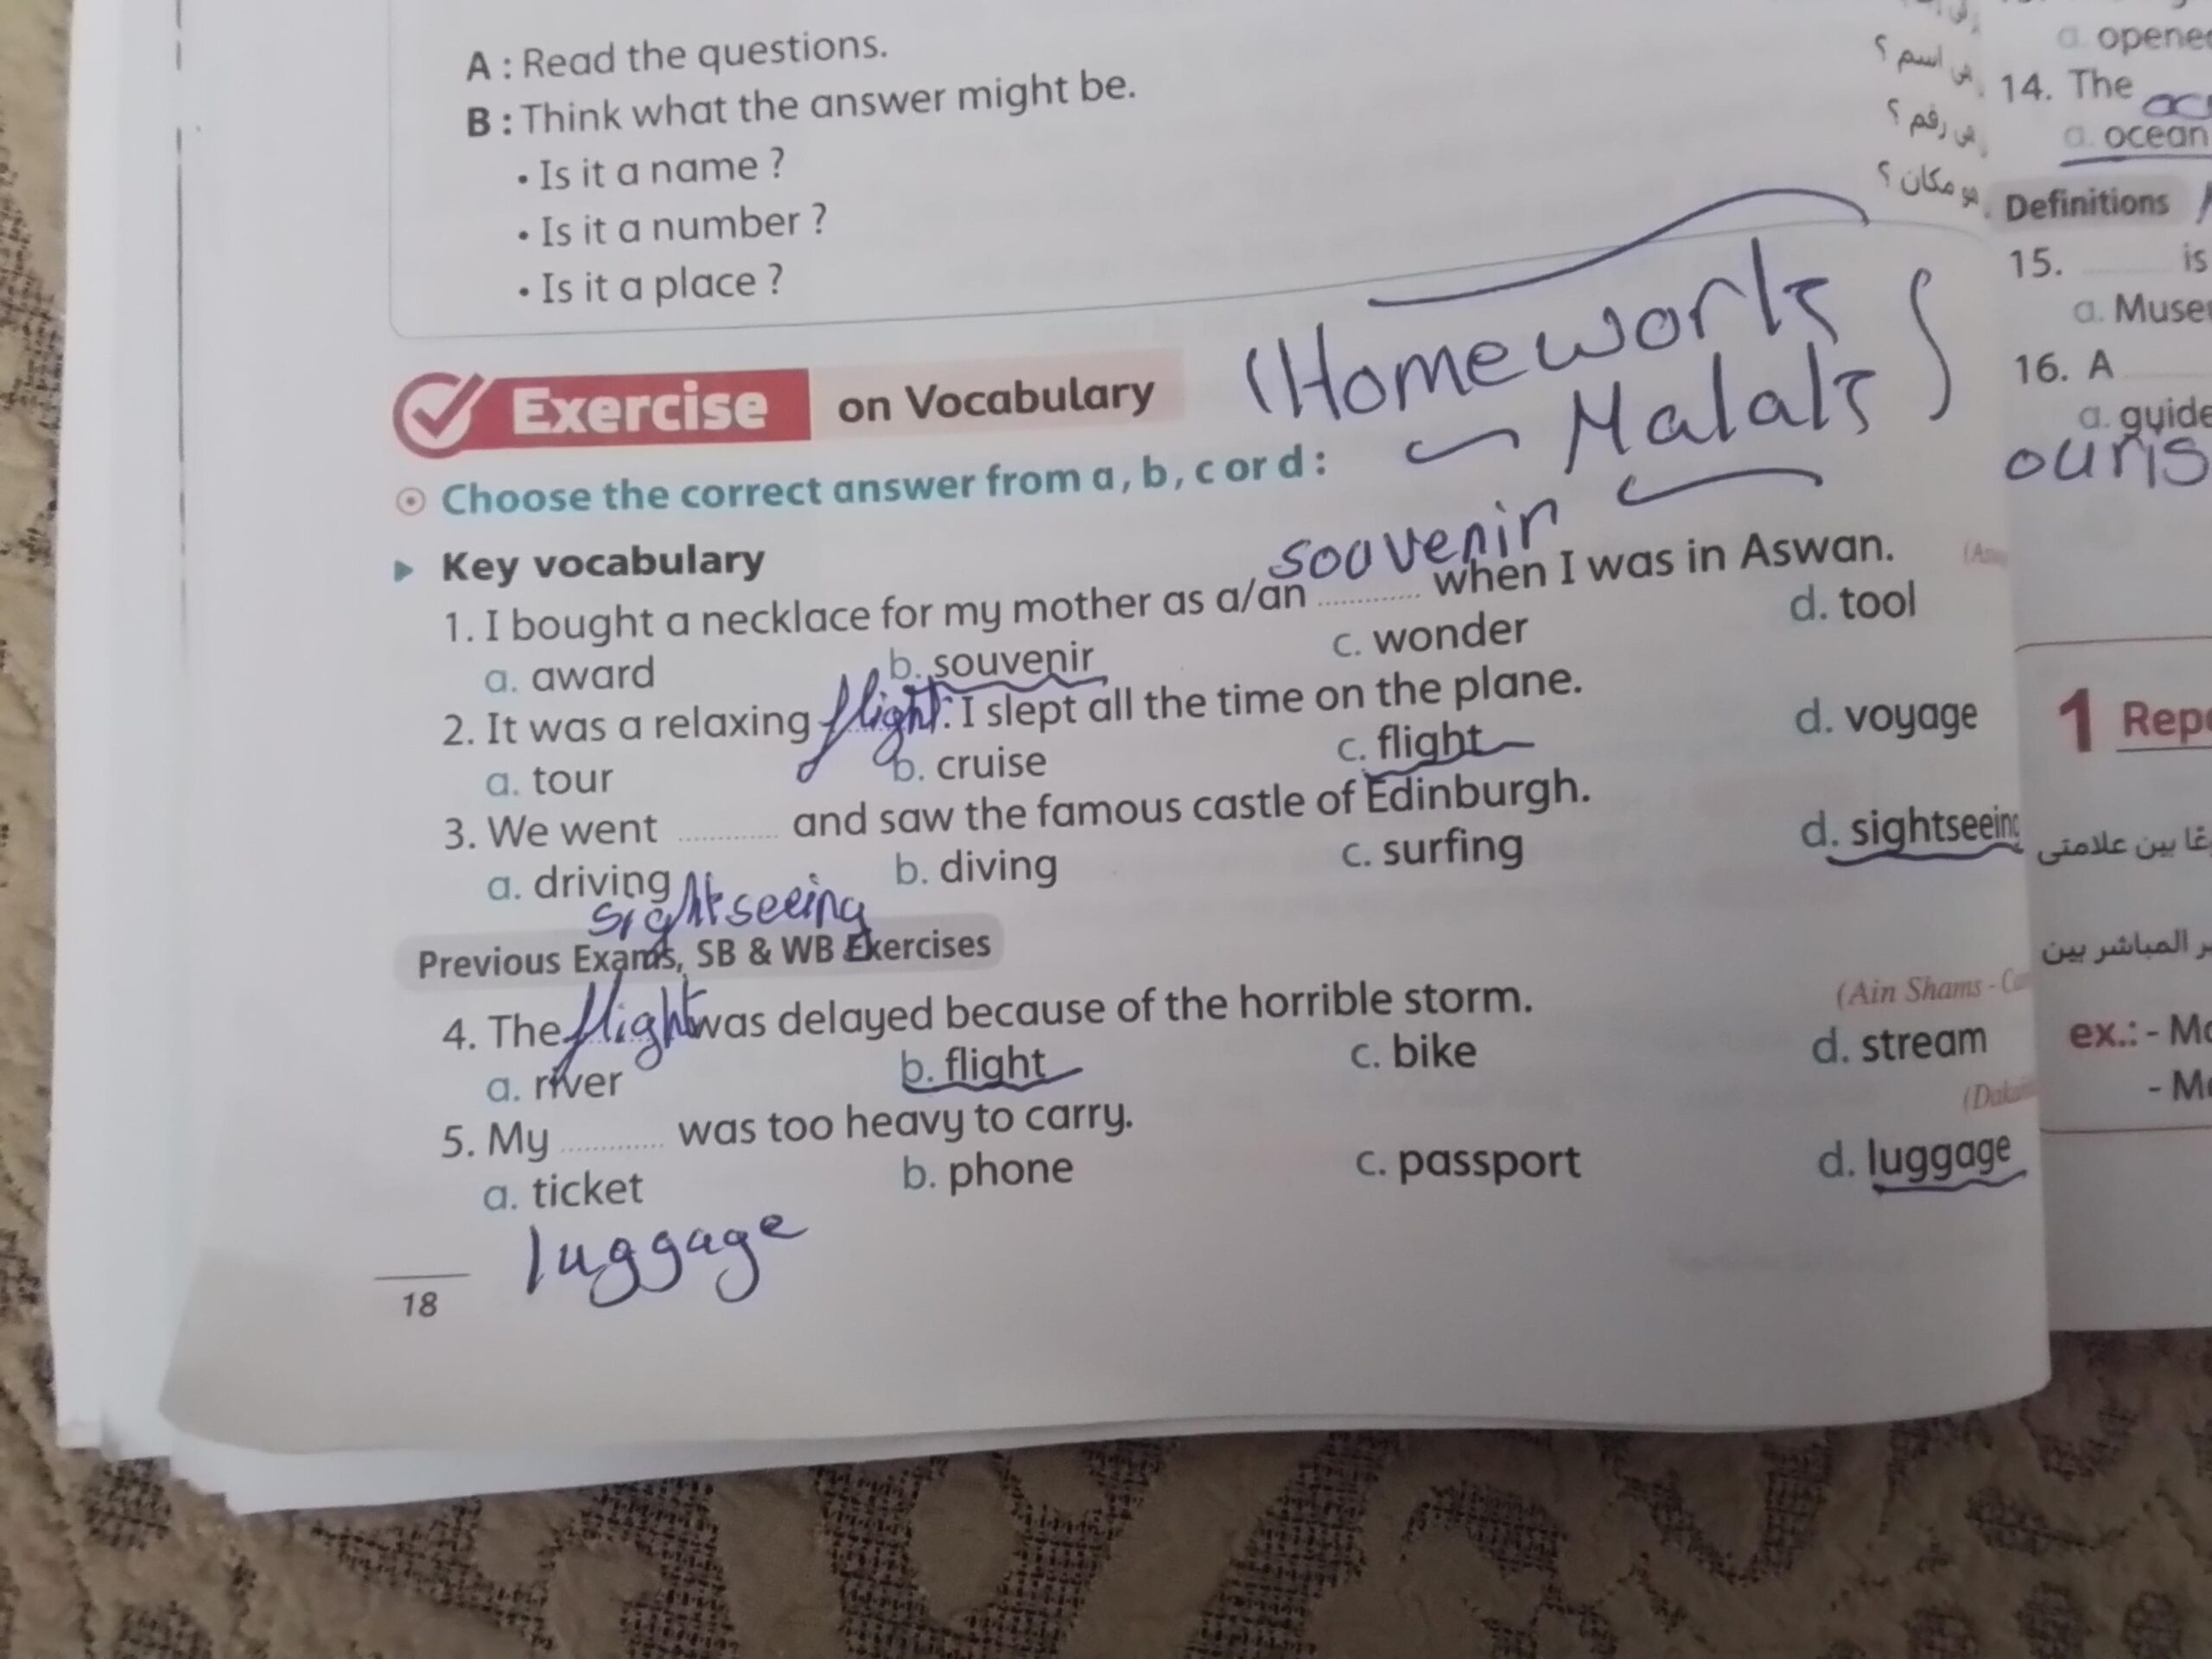 A : Read the questions.
B : Think what the answer might be.
• Is it a name ?
• Is it a number ?
• Is it a place ?
ى اسم ؟
ى رقم ؟
هو مكان ؟
Exercise on Vocabulary
(Homework
Malak)
Choose the correct answer from a, b, c or d :
Key vocabulary
souvenir
1. I bought a necklace for my mother as a/an ............ when I was in Aswan.
a. award b. souvenir c. wonder d. tool
2. It was a relaxing flight. I slept all the time on the plane.
a. tour b. cruise c. flight d. voyage
3. We went ............ and saw the famous castle of Edinburgh.
a. driving b. diving c. surfing d. sightseeing
sightseeing
Previous Exams, SB & WB Exercises
4. The flight was delayed because of the horrible storm.
(Ain Shams -
a. river b. flight c. bike d. stream
5. My ............ was too heavy to carry.
a. ticket b. phone c. passport d. luggage
luggage
18
a. opened
14. The
a. ocean
Definitions
15. ........ is
a. Muse
16. A
a. guide
ouris
1 Rep
بين علامتى
المباشر بين
ex.: - Mo
- Mo